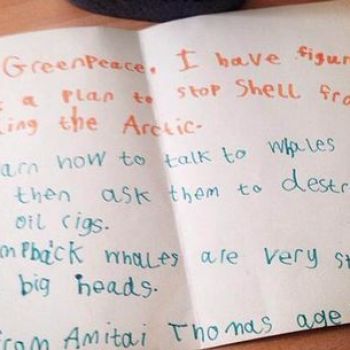 Greenpeace. I have figur
a plan to stop Shell fro
ing the Arctic.
arn how to talk to whales
then ask them to destr
oil rigs.
mpback whales are very st
big heads.
rom Amitai Thomas age